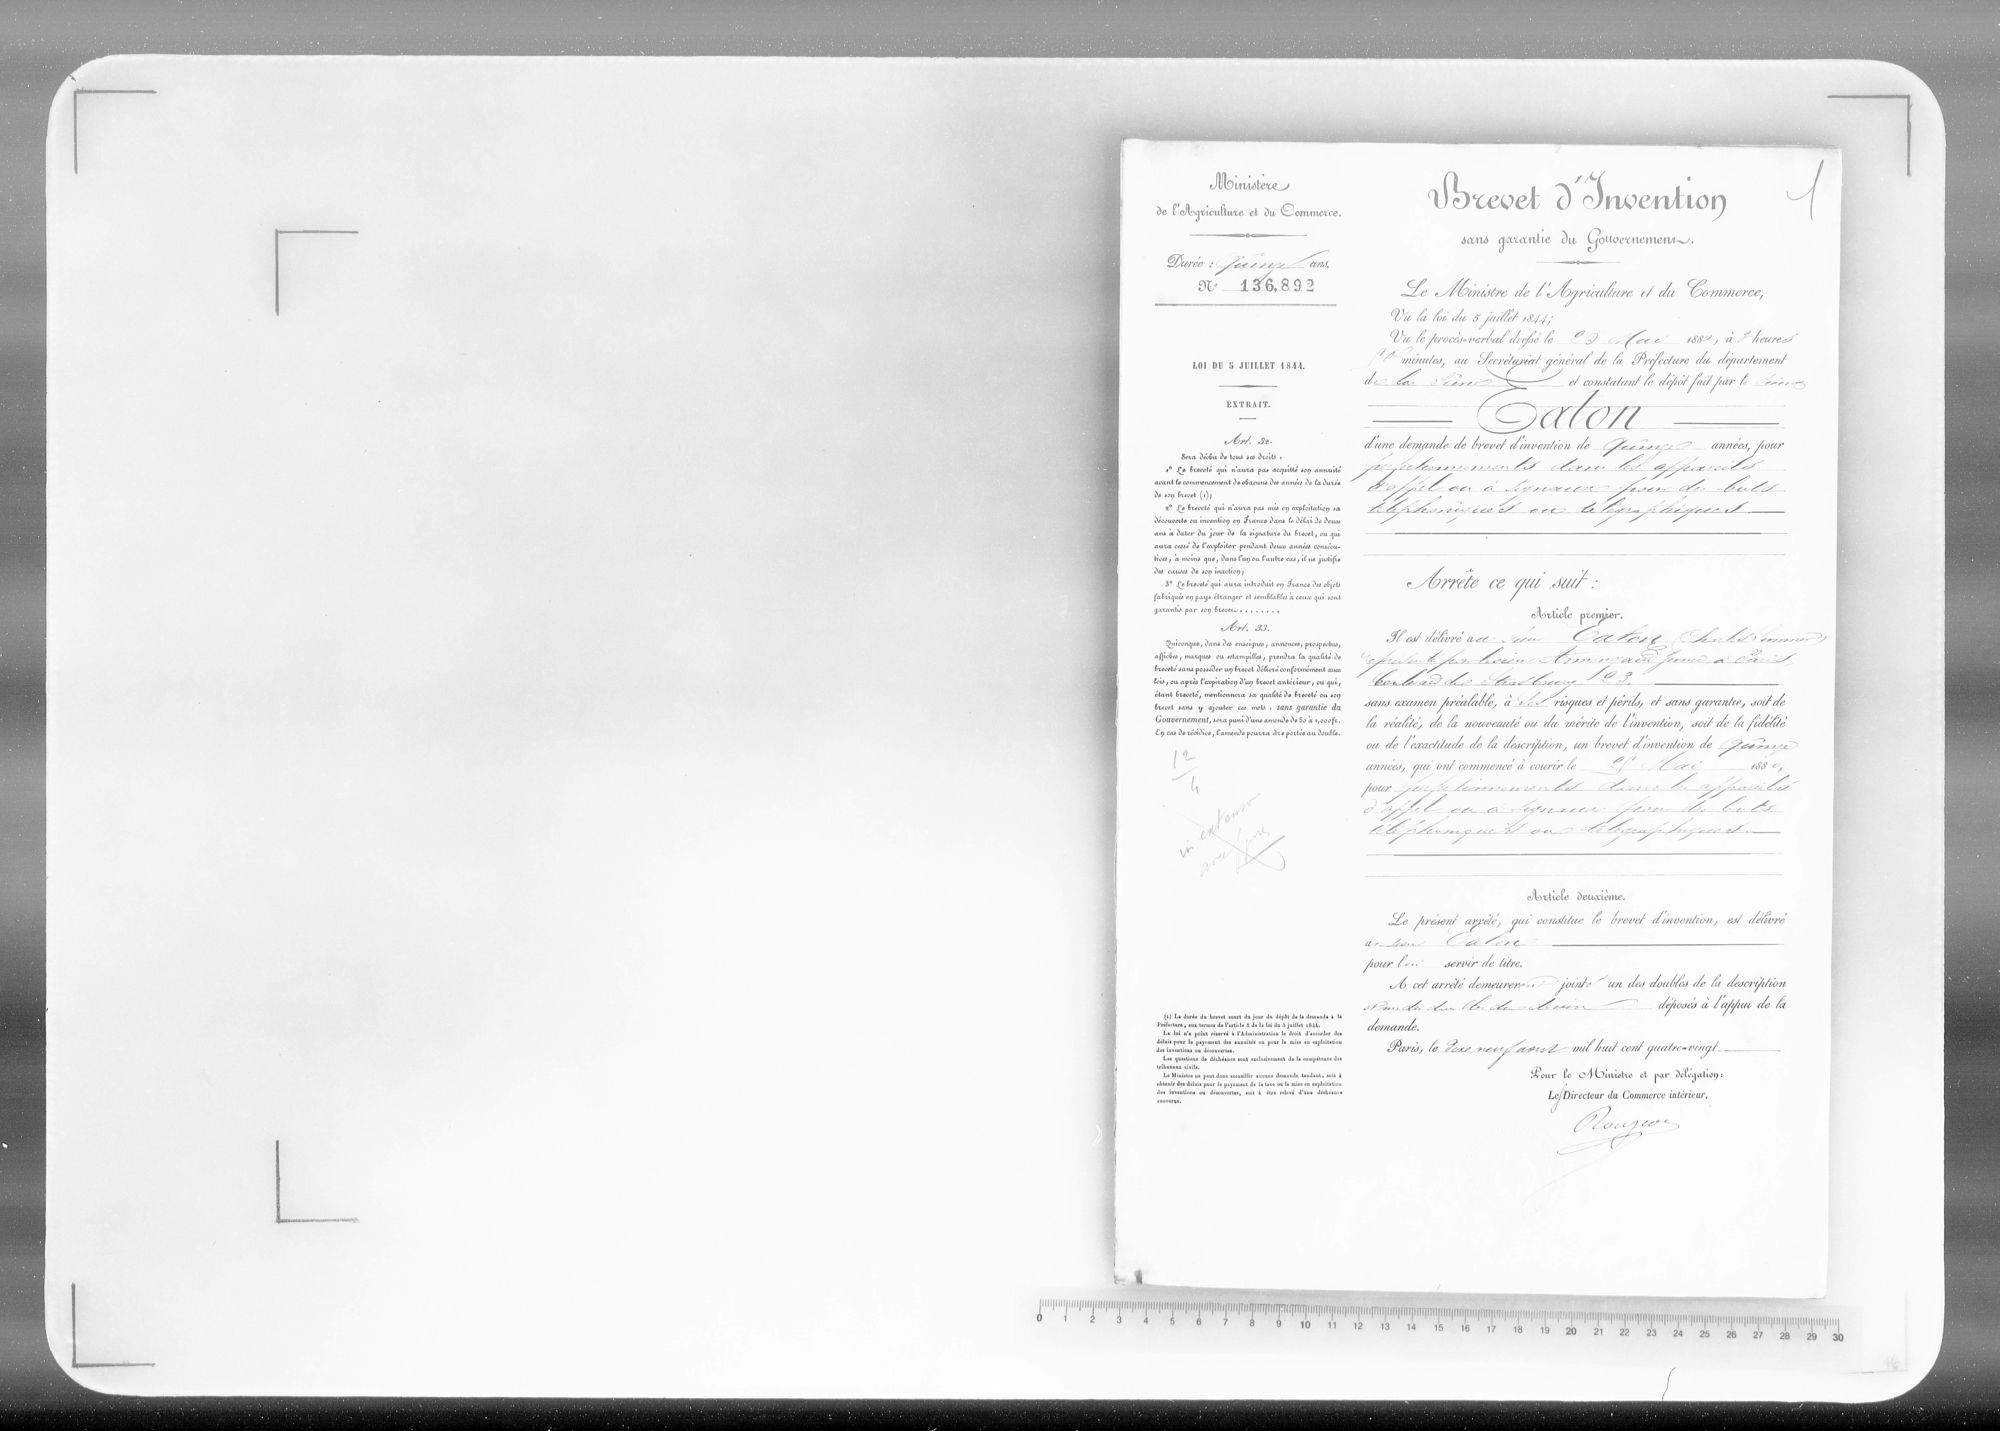 Ministère
de l'Agriculture et du Commerce.
Durée : Quinze ans.
N° 136,892
LOI DU 5 JUILLET 1844.
EXTRAIT.
Art. 32.
Sera déchu de tous ses droits :
1° Le breveté qui n'aura pas acquitté son annuité
avant le commencement de chacune des années de la durée
de son brevet (1);
2° Le breveté qui n'aura pas mis en exploitation sa
découverte ou invention en France dans le délai de deux
ans à dater du jour de la signature du brevet, ou qui
aura cessé de l'exploiter pendant deux années consécu-
tives, à moins que, dans l'un ou l'autre cas, il ne justifie
des causes de son inaction;
3° Le breveté qui aura introduit en France des objets
fabriqués en pays étranger et semblables à ceux qui sont
garantis par son brevet........
Art. 33.
Quiconque, dans des enseignes, annonces, prospectus,
affiches, marques ou estampilles, prendra la qualité de
breveté sans posséder un brevet délivré conformément aux
lois, ou après l'expiration d'un brevet antérieur, ou qui,
étant breveté, mentionnera sa qualité de breveté ou son
brevet sans y ajouter ces mots : sans garantie du
Gouvernement, sera puni d'une amende de 50 à 1,000 fr.
En cas de récidive, l'amende pourra être portée au double.
12
4
in extenso
avec
(1) La durée du brevet court du jour du dépôt de la demande à la
Préfecture, aux termes de l'article 8 de la loi du 5 juillet 1844.
La loi n'a point réservé à l'Administration le droit d'accorder des
délais pour le payement des annuités ou pour la mise en exploitation
des inventions ou découvertes.
Les questions de déchéance sont exclusivement de la compétence des
tribunaux civils.
Le Ministre ne peut donc accueillir aucune demande tendant, soit à
obtenir des délais pour le payement de la taxe ou la mise en exploitation
des inventions ou découvertes, soit à être relevé d'une déchéance
encourue.
1
Brevet d'Invention
sans garantie du Gouvernement.
Le Ministre de l'Agriculture et du Commerce,
Vu la loi du 5 juillet 1844;
Vu le procès-verbal dressé le Mai 1880, à heures
minutes, au Secrétariat général de la Préfecture du département
de la Seine et constatant le dépôt fait par le Sieur
Eaton
d'une demande de brevet d'invention de quinze années, pour
perfectionnements dans les appareils
d'appel ou à signaux pour des buts
téléphoniques ou télégraphiques
Arrête ce qui suit :
Article premier.
Il est délivré au Sieur Eaton (Charles Summer)
représenté par Armengaud jeune à Paris,
boulevard de Strasbourg 23.
sans examen préalable, à ses risques et périls, et sans garantie, soit de
la réalité, de la nouveauté ou du mérite de l'invention, soit de la fidélité
ou de l'exactitude de la description, un brevet d'invention de quinze
années, qui ont commencé à courir le Mai 1880,
pour perfectionnements dans les appareils
d'appel ou à signaux pour des buts
téléphoniques ou télégraphiques
Article deuxième.
Le présent arrêté, qui constitue le brevet d'invention, est délivré
au Sieur Eaton
pour lui servir de titre.
A cet arrêté demeureront joints un des doubles de la description
et un des doubles du dessin déposés à l'appui de la
demande.
Paris, le dix neuf août mil huit cent quatre-vingt
Pour le Ministre et par délégation :
Le Directeur du Commerce intérieur,
0 1 2 3 4 5 6 7 8 9 10 11 12 13 14 15 16 17 18 19 20 21 22 23 24 25 26 27 28 29 30